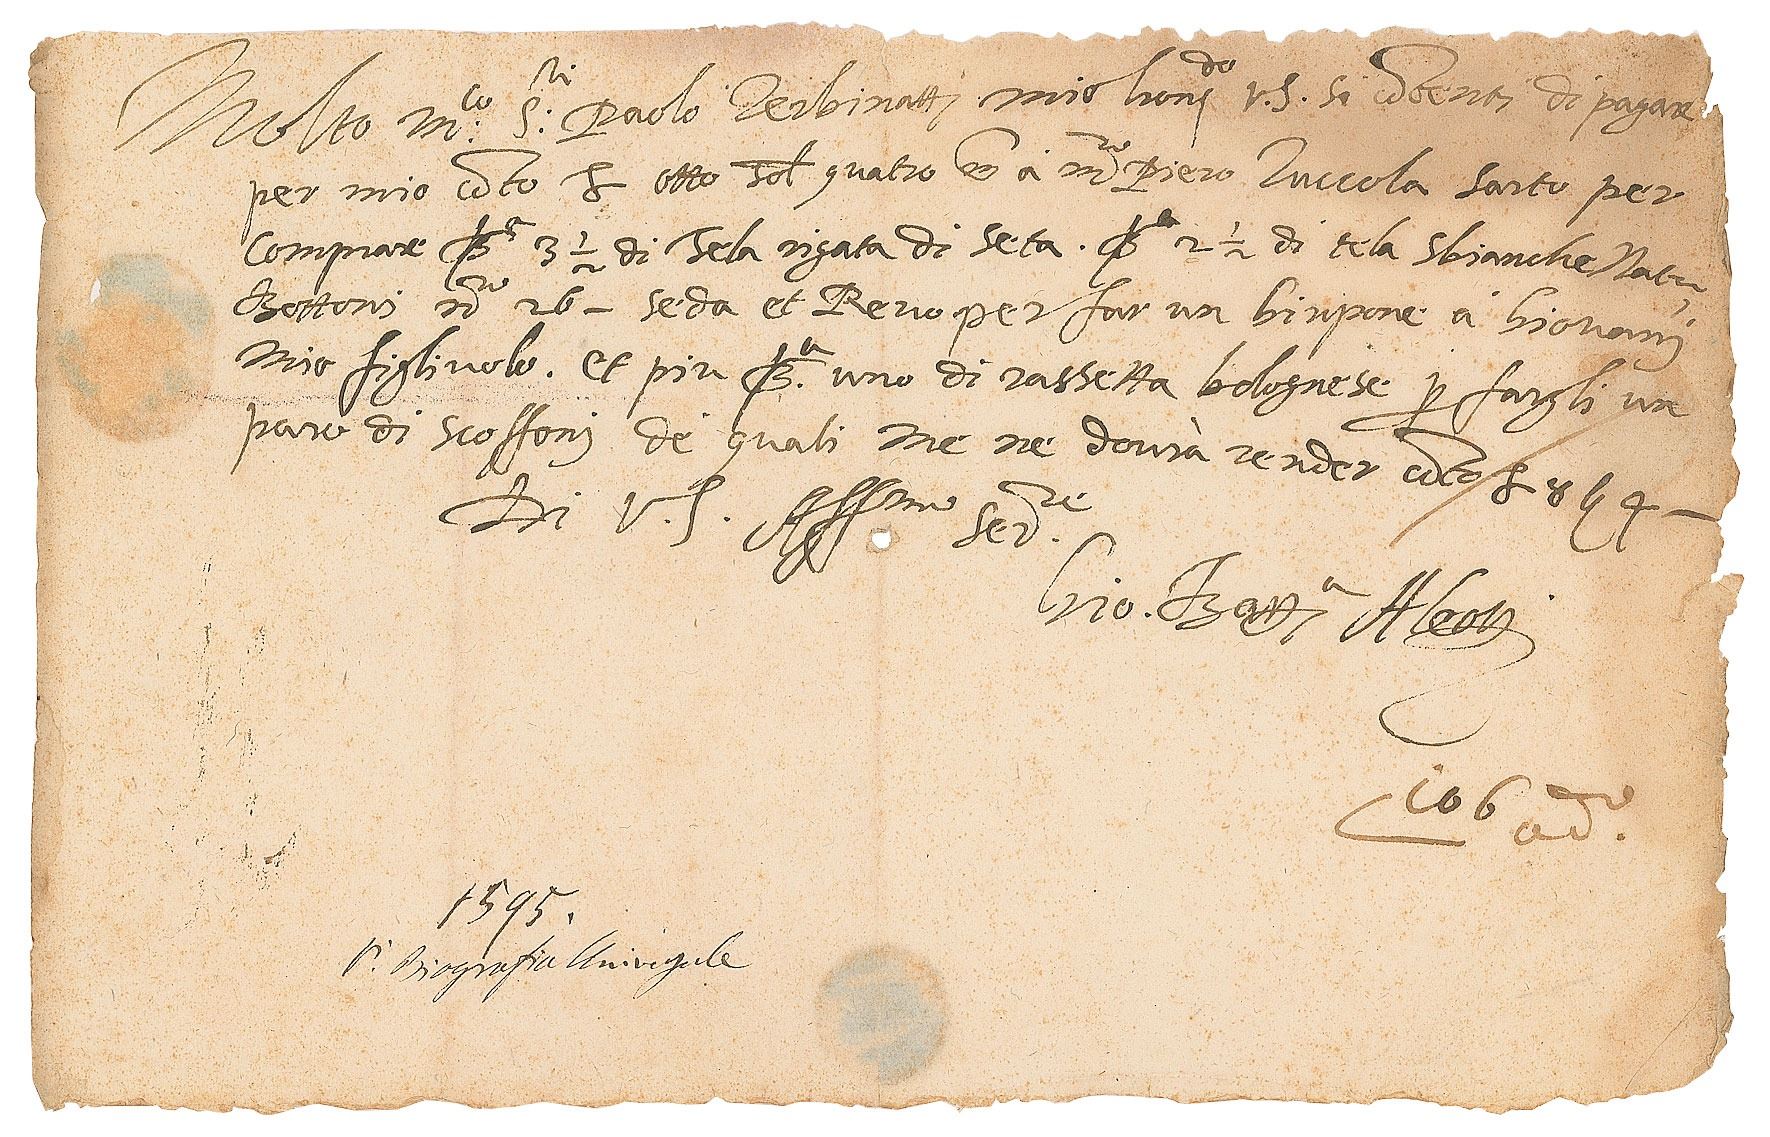 Molto m.co S.ri Paolo Zerbinatti mio hon.do V.S. si cōtenti di pagare
per mio cōto £ otto sol quatro a m.ro Piero Zuccola sarto per
comprare B.a 3 1/2 di Tela rigata di seta. B.a 2 1/2 di tela sbianche
Bottoni n.ro 26 – seda et Revo per far un hiupone a Giovanni
mio figliuolo. et piu B.a uno di rassetta bolognese p fargli un
paro di scoffoni de quali me ne dovrà render cōto £ 8 ß 4 –
Di V.S. Aff.mo Ser.re
Gio. Batt.a Aleotti
106
1595.
V. Biografia Universale